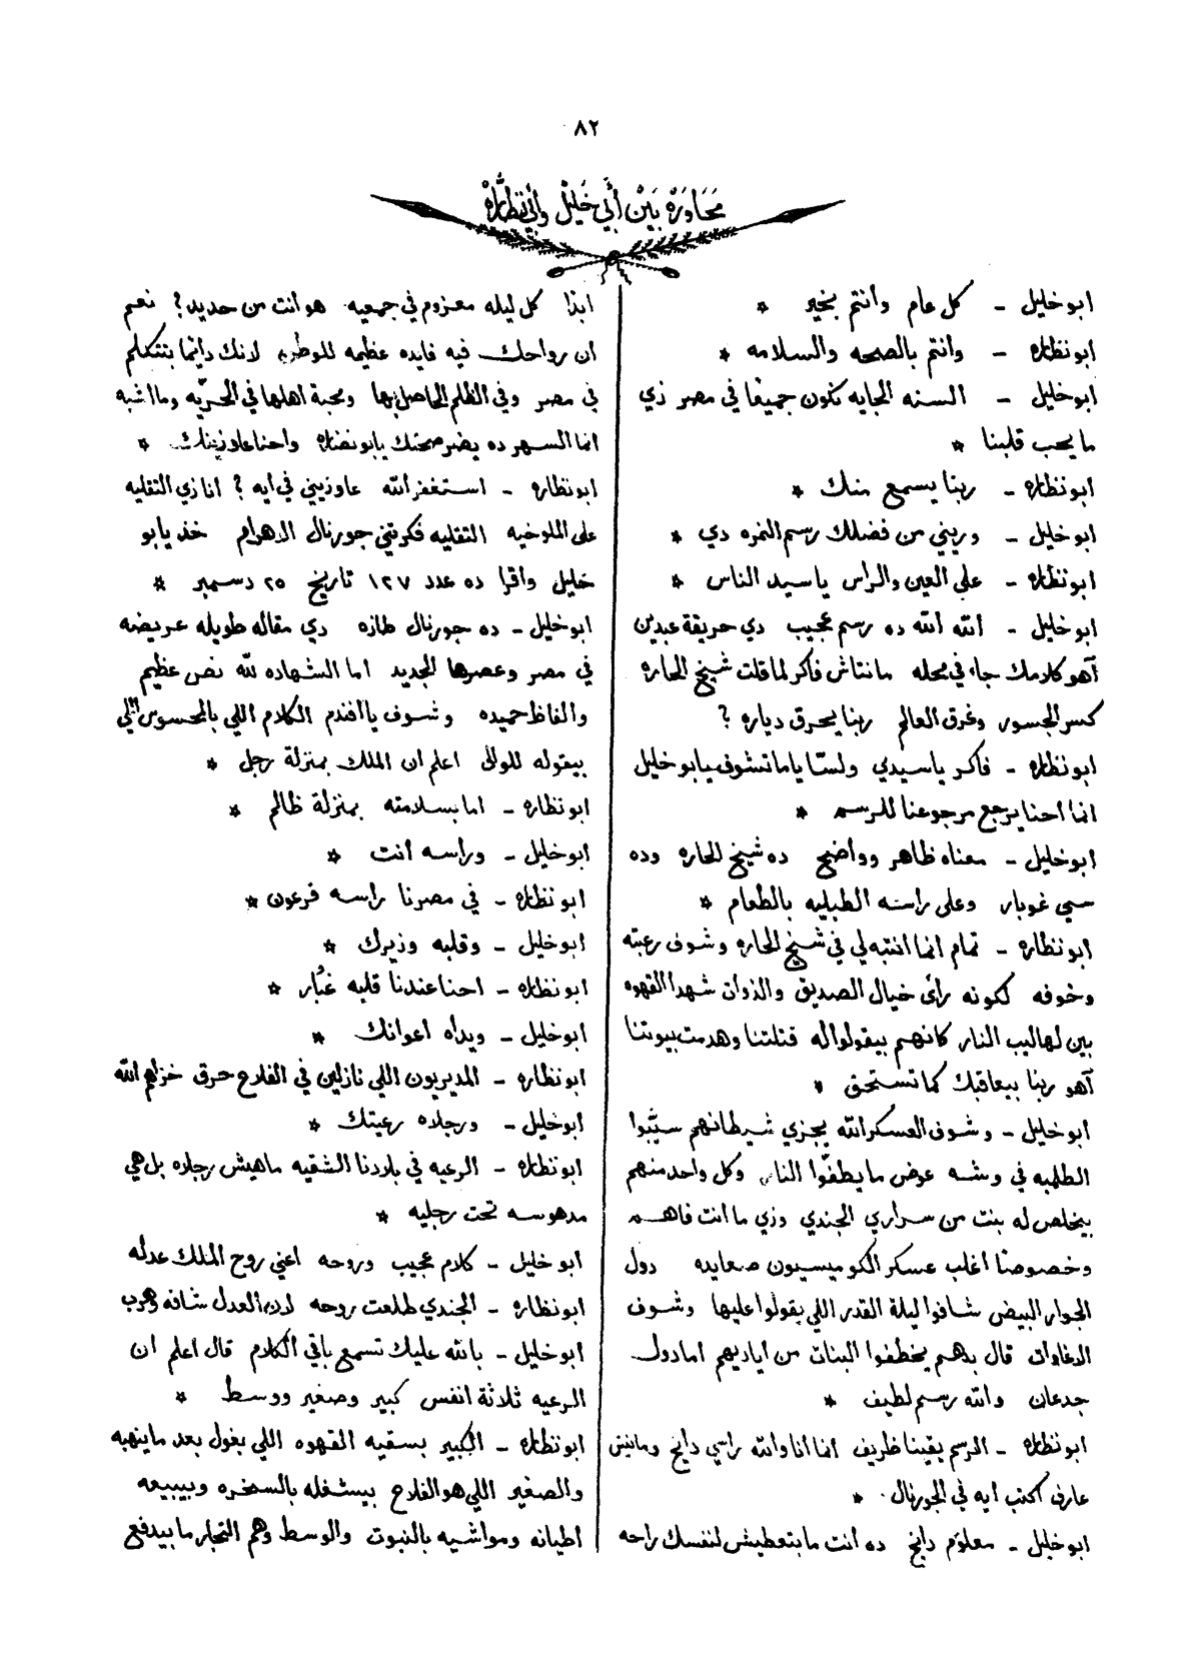 ٨٢
مَحَاوَرَة بَيْن أَبِي خَلِيْل وأبي نظّارة
ابو خليل - كل عام وانتم بخير *
ابو نظاره - وانتم بالصحه والسلامه *
ابو خليل - السنه الجايه نكون جميعًا في مصر زي
ما يحب قلبنا *
ابو نظاره - ربنا يسمع منك *
ابو خليل - وريني من فضلك رسم النمره دي *
ابو نظاره - على العين والراس ياسيد الناس *
ابو خليل - الله الله ده رسم عجيب دي حريقة عبدين
آهو كلامك جاء في محله مانتاش فاكر لما قلت شيخ الحاره
كسر الجسور وغرق العالم ربنا يحرق دياره ؟
ابو نظاره - فاكر ياسيدي ولسّا ياما تشوف يابو خليل
انما احنا يرجع مرجوعنا للرسم *
ابو خليل - معناه ظاهر وواضح ده شيخ الحاره وده
سي غوبار وعلى راسه الطبليه بالطعام *
ابو نظاره - تمام انما انتبه لي في شيخ الحاره وشوف رعبته
وخوفه لكونه رأى خيال الصديق والذوات شهدا القهوه
بين لهاليب النار كانهم بيقولوا له قتلتنا وهدمت بيوتنا
آهو ربنا بيعاقبك كما تستحق *
ابو خليل - وشوف العسكر الله يجزي شيطانهم سيّبوا
الطلمبه في وشه عوض ما يطفّوا النار وكل واحد منهم
بيخلص له بنت من سراري الجندي وزي ما انت فاهم
وخصوصًا اغلب عسكر الكوميسيون صعايده دول
الجوار البيض شافوا ليلة القدر اللي بقولوا عليها وشوف
الاغاوات قال بدهم يخطفوا البنات من اياديهم اما دول
جدعان والله رسم لطيف *
ابو نظاره - الرسم يقينا ظريف انما انا والله راسي دايخ ومانيش
عارف اكتب ايه في الجورنال *
ابو خليل - معلوم دايخ ده انت ما بتعطيش لنفسك راحه
ابدًا كل ليله معزوم في جمعيه هو انت من حديد ؟ نعم
ان رواحك فيه فايده عظيمه للوطن لانك دايمًا بتتكلم
في مصر وفي الظلم الحاصل بها ومحبة اهلها في الحريّه وما اشبه
انما السهر ده يضر صحتك يابو نضاره واحنا عاوزينك *
ابو نظاره - استغفر الله عاوزيني في ايه ؟ انا زي التقليه
على الملوخيه التقليه فكرتني جورنال الاهرام خذ يابو
خليل واقرا ده عدد ١٢٧ تاريخ ٢٥ دسمبر *
ابو خليل - ده جورنال طازه دي مقاله طويله عريضه
في مصر وعصرها الجديد اما الشهاده لله نص عظيم
والفاظ حميده وشوف يا افندم الكلام اللي بالمحسوس اللي
بيقوله للوالى اعلم ان الملك بمنزلة رجل *
ابو نظاره - اما بسلامته بمنزلة ظالم *
ابو خليل - وراسه انت *
ابو نظاره - في مصرنا راسه فرعون *
ابو خليل - وقلبه وزيرك *
ابو نظاره - احنا عندنا قلبه غبُار *
ابو خليل - ويداه اعوانك *
ابو نظاره - المديريون اللي نازلين في الفلاح حرق خزاهم الله
ابو خليل - ورجلاه رعيتك *
ابو نظاره - الرعيه في بلادنا الشقيه ماهيش رجلاه بل هي
مدهوسه تحت رجليه *
ابو خليل - كلام عجيب وروحه اعني روح الملك عدله
ابو نظاره - الجندي طلعت روحه لان العدل شافه وهرب
ابو خليل - بالله عليك تسمع باقي الكلام قال اعلم ان
الرعيه ثلاثة انفس كبير وصغير ووسط *
ابو نظاره - الكبير بسقيه القهوه اللي بغول بعد ما ينهبه
والصغير اللي هو الفلاح بيستغله بالسخره وبيبيعه
اطيانه ومواشيه بالنبوت والوسط وهم التجار ما بيدفع